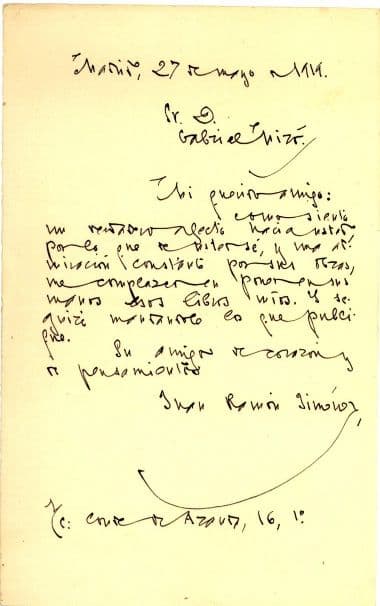 Madrid, 27 de mayo de 1919.
Sr. D.
Gabriel Miró.
Mi querido amigo:
como siento
un verdadero afecto hacia usted
por lo que de usted sé, y una ad-
miración constante por sus obras,
me complazco en poner en sus
manos esos libros míos. Y se-
guiré mandando lo que publi-
que.
Su amigo de corazón y
de pensamiento
Juan Ramón Jiménez,
c: Conde de Aranda, 16, 1º